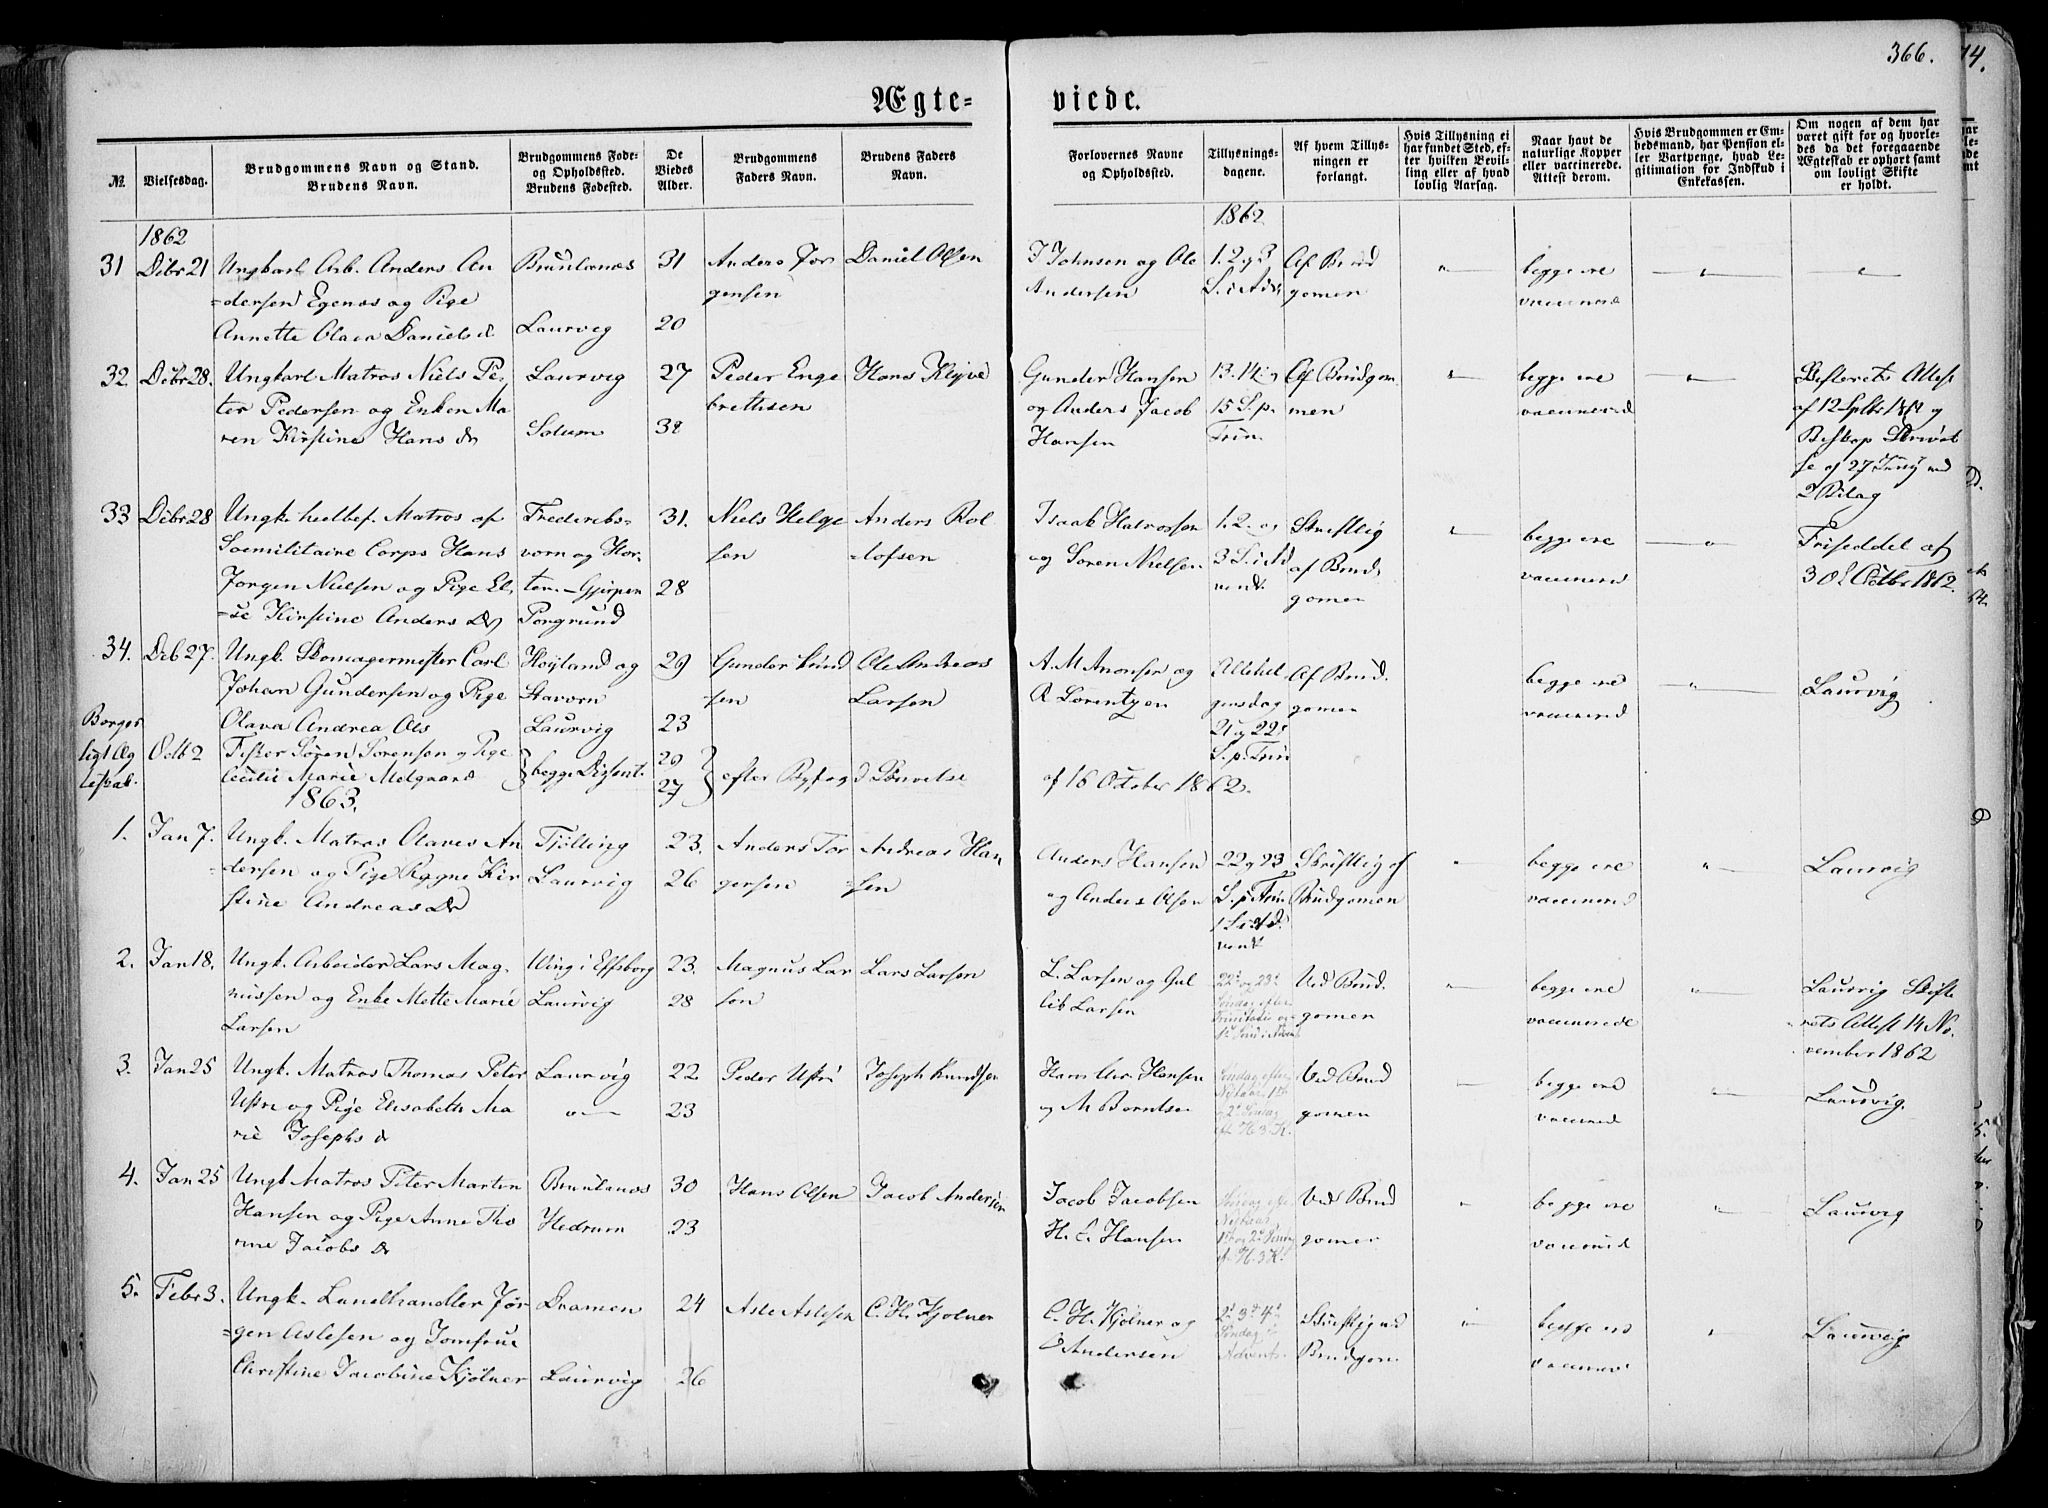 366.
Ægte-
viede.
№
Vielsesdag.
Brudgommens Navn og Stand.
Brudens Navn.
Brudgommens Føde-
og Opholdssted.
Brudens Fødested.
De
Viedes
Alder.
Brudgommens
Faders Navn.
Brudens Faders
Navn.
Forlovernes Navne
og Opholdssted.
Tillysnings-
dagene.
Af hvem Tillys-
ningen er
forlangt.
Hvis Tillysning ei
har fundet Sted, ef-
ter hvilken Bevil-
ling eller af hvad
lovlig Aarsag.
Naar havt de
naturlige Kopper
eller vaccinerede.
Attest derom.
Hvis Brudgommen er Em-
bedsmand, har Pension el-
ler Vartpenge, hvad Le-
gitimation for Indskud i
Enkekassen.
Om nogen af dem har
været gift for og hvorle-
des da det foregaaende
Ægteskab er ophørt samt
om lovligt Skifte
er holdt.
1862
1862
31 Dcbr 21
Ungkarl Arb. Anders An
=dersen Egenæs og Pige
Annette Olava Daniels d
Brunlanæs
Laurvig
31
20
Anders Jør
gensen
Daniel Olsen
J Johnsen og Ole
Andersen
1.2 og 3
S. i Adv
Af Brud
gomen
begge ere
vaccinered
32. Dcbr 28.
Ungkarl Matros Niels Pe
ter Pedersen og Enken Ma
ren Kirstine Hans dr
Laurvig
Solum
27
38
Peder Enge
brethsen
Hans Klyve
Gunder Hansen
og Anders Jacob
Hansen
13. 14. og
15 S. p.
Trin.
Af Brudgom
men
begge ere
vaccinered
Skifterets Attest
af 12 Septbr og
Biskop Skrivel
se af 27
2 Bilag
33 Dcbr 28
Ungk. Matros af
Søemilitaire Corps Hans
Jørgen Nielsen og Pige El
=se Kirstine Anders Dr
Frederiks-
vorn og Hor-
ten - Gjerpen
Porsgrund
31.
28
Niels Helge
sen
Anders Rol
=lofsen
Isaak Halvorsen
og Søren Nielsen
1. 2. og
3 S. i Ad
vent
Skriftlig
af Brud
gomen
begge ere
vaccinered
Friseddel af
30 Octbr 1862.
34. Dcb 27.
Ungk. Skomagermester Carl
Johan Gundersen og Pige
Olava Andrea Ols
Høyland og
Stavern
Laurvig
29
23
Gunder
sen
Ole Andreas
Larsen
A. M Aronsen og
R Lorentzen
Allehel
gensdag
21 og 22
S. p. Trin
Af Brud
gomen
begge ere
vaccinered
Laurvig
Borger
ligt Æg
teskab.
Octb 2
Fisker Søren Sørensen og Pige
Cecilie Marie Melgaard
begge Dissent.
29
27
efter Byfogd Skrivelse
af 16 October 1862.
1863.
1. Jan 7.
Ungk. Matros Olaves An
=dersen og Pige Rægne Kir
stine Andreas Dr
Tjølling
Laurvig
23.
26
Anders Tor
gersen
Andreas Han
=sen
Anders Hansen
og Anders Olsen
22 og 23
S. p Trin
1 S. i Ad
vent
Skriftlig af
Brudgomen
begge ere
vaccinered
Laurvig
2. Jan 18.
Ungk. Arbeider Lars Mag
nussen og Enke Mette Marie
Larsen
Wing i Elfsborg
Laurvig
23.
28
Magnus Lar
sen
Lars Larsen
L. Larsen og Gul
lik Larsen
22 og 23
Søndag efter
Trinitatis og
1 Sønd i Advent
Ved Brud
gomen
begge ere
vaccinerede
Laurvig Skifte
rets Attest 14 No
vember 1862
3. Jan 25
Ungk. Matros Thomas Peter
Ustri og Pige Elisabeth Ma
rie Josephs dr
Laurvig
22
23
Peder Ustri
Joseph Knudsen
Hans Chr. Hansen
og M Berntsen
Søndag efter
Nytaar 1ste
og 2 Søndag
eft H. 3. K.
Ved Brud
gomen
begge ere
vaccinered
Laurvig.
4. Jan 25
Ungk Matros Peter Martin
Hansen og Pige Anne Tho
rine Jacobs dr
Brunlanæs
Hedrum
30
23
Hans Olsen
Jacob Andersen
Jacob Jacobsen
H. C. Hansen
Søndag efter
Nytaar
1ste og 2 Sønd
ef. H. 3. K.
Ved Brud
gomen
begge ere
vaccinered
Laurvig
5. Febr 3.
Ungk. Landhandler Jør
=gen Aslesen og Jomfrue
Christine Jacobine Kjølner
Dramen
Laurvig
24
26
Asle Aslesen
C. H. Kjølner
C. H. Kjølner og
Andersen
2 3 4
Søndag i
Advent.
Skriftlig ved
Brudgom
begge ere
vaccinered
Laurvig